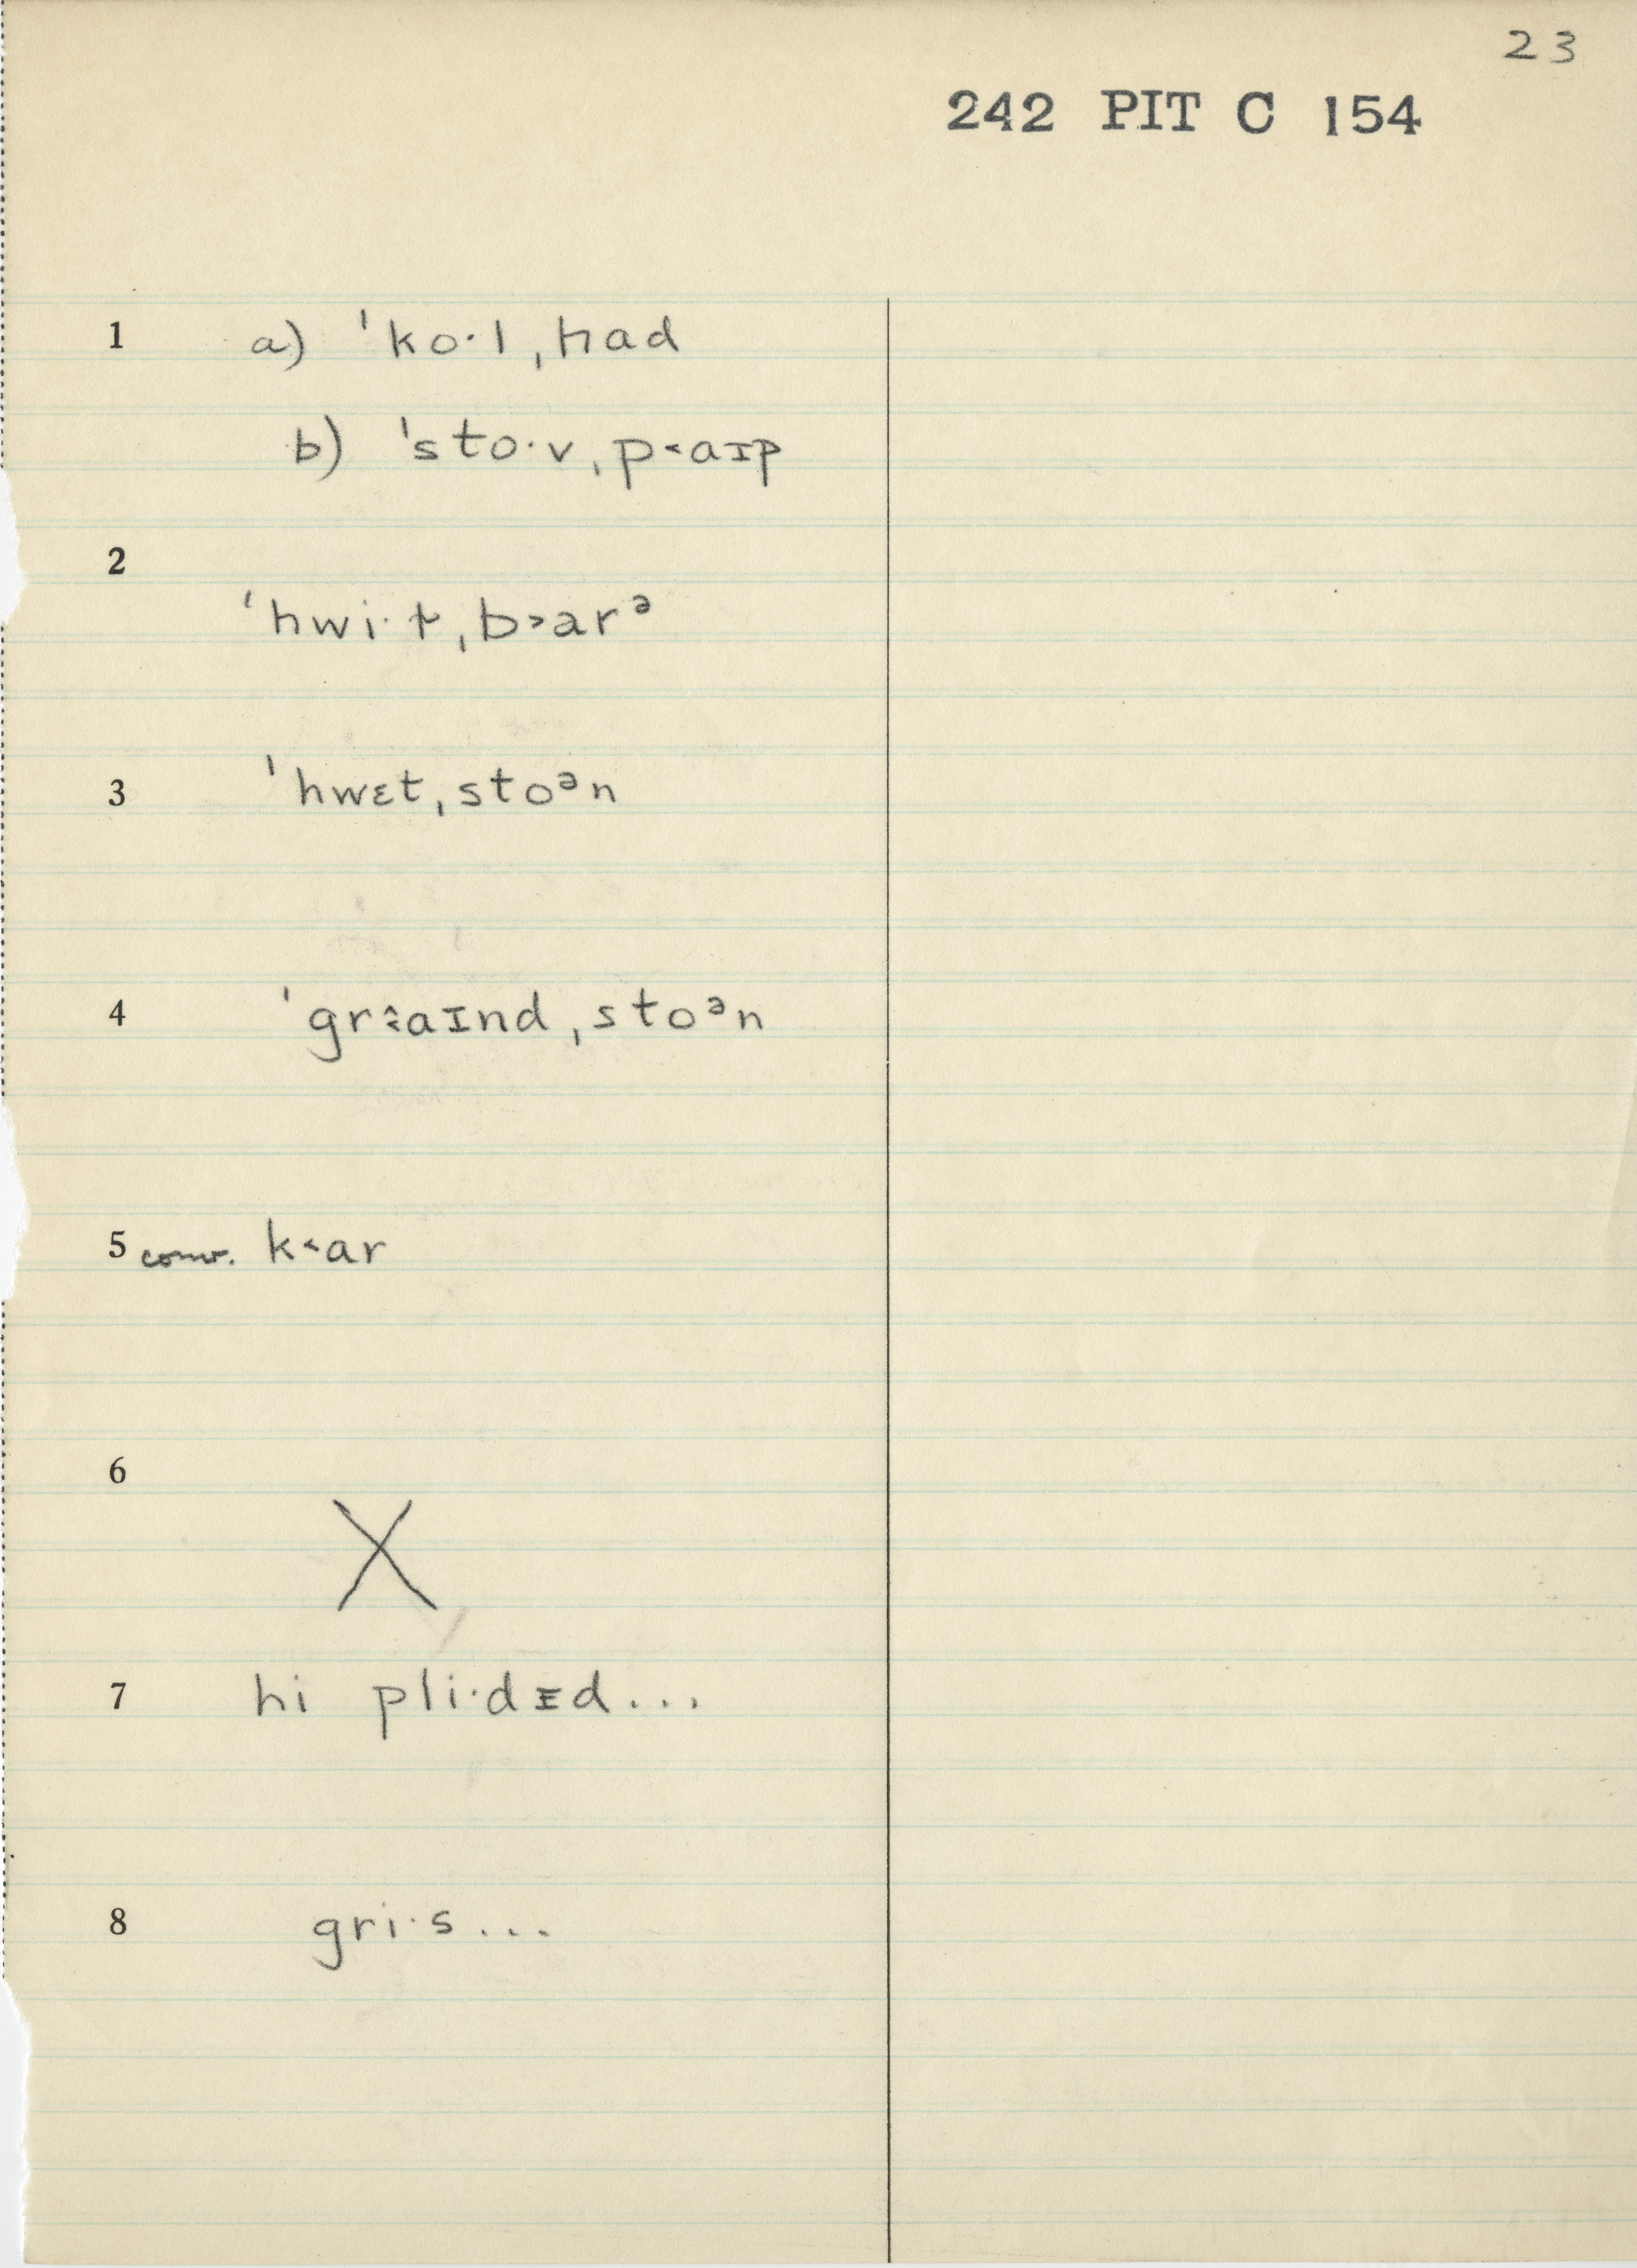 23
242 PIT C 154
1 a) ˈko·lˌhad
b) ˈsto·vˌp˂aɪp
2
ˈhwi·t̬ˌb˃arᵊ
3 ˈhwɛtˌstoᵊn
4 ˈgr˂̂aɪndˌstoᵊn
5 conv. k˂ar
6
X
7 hi pli·dɪd...
8 gri·s...